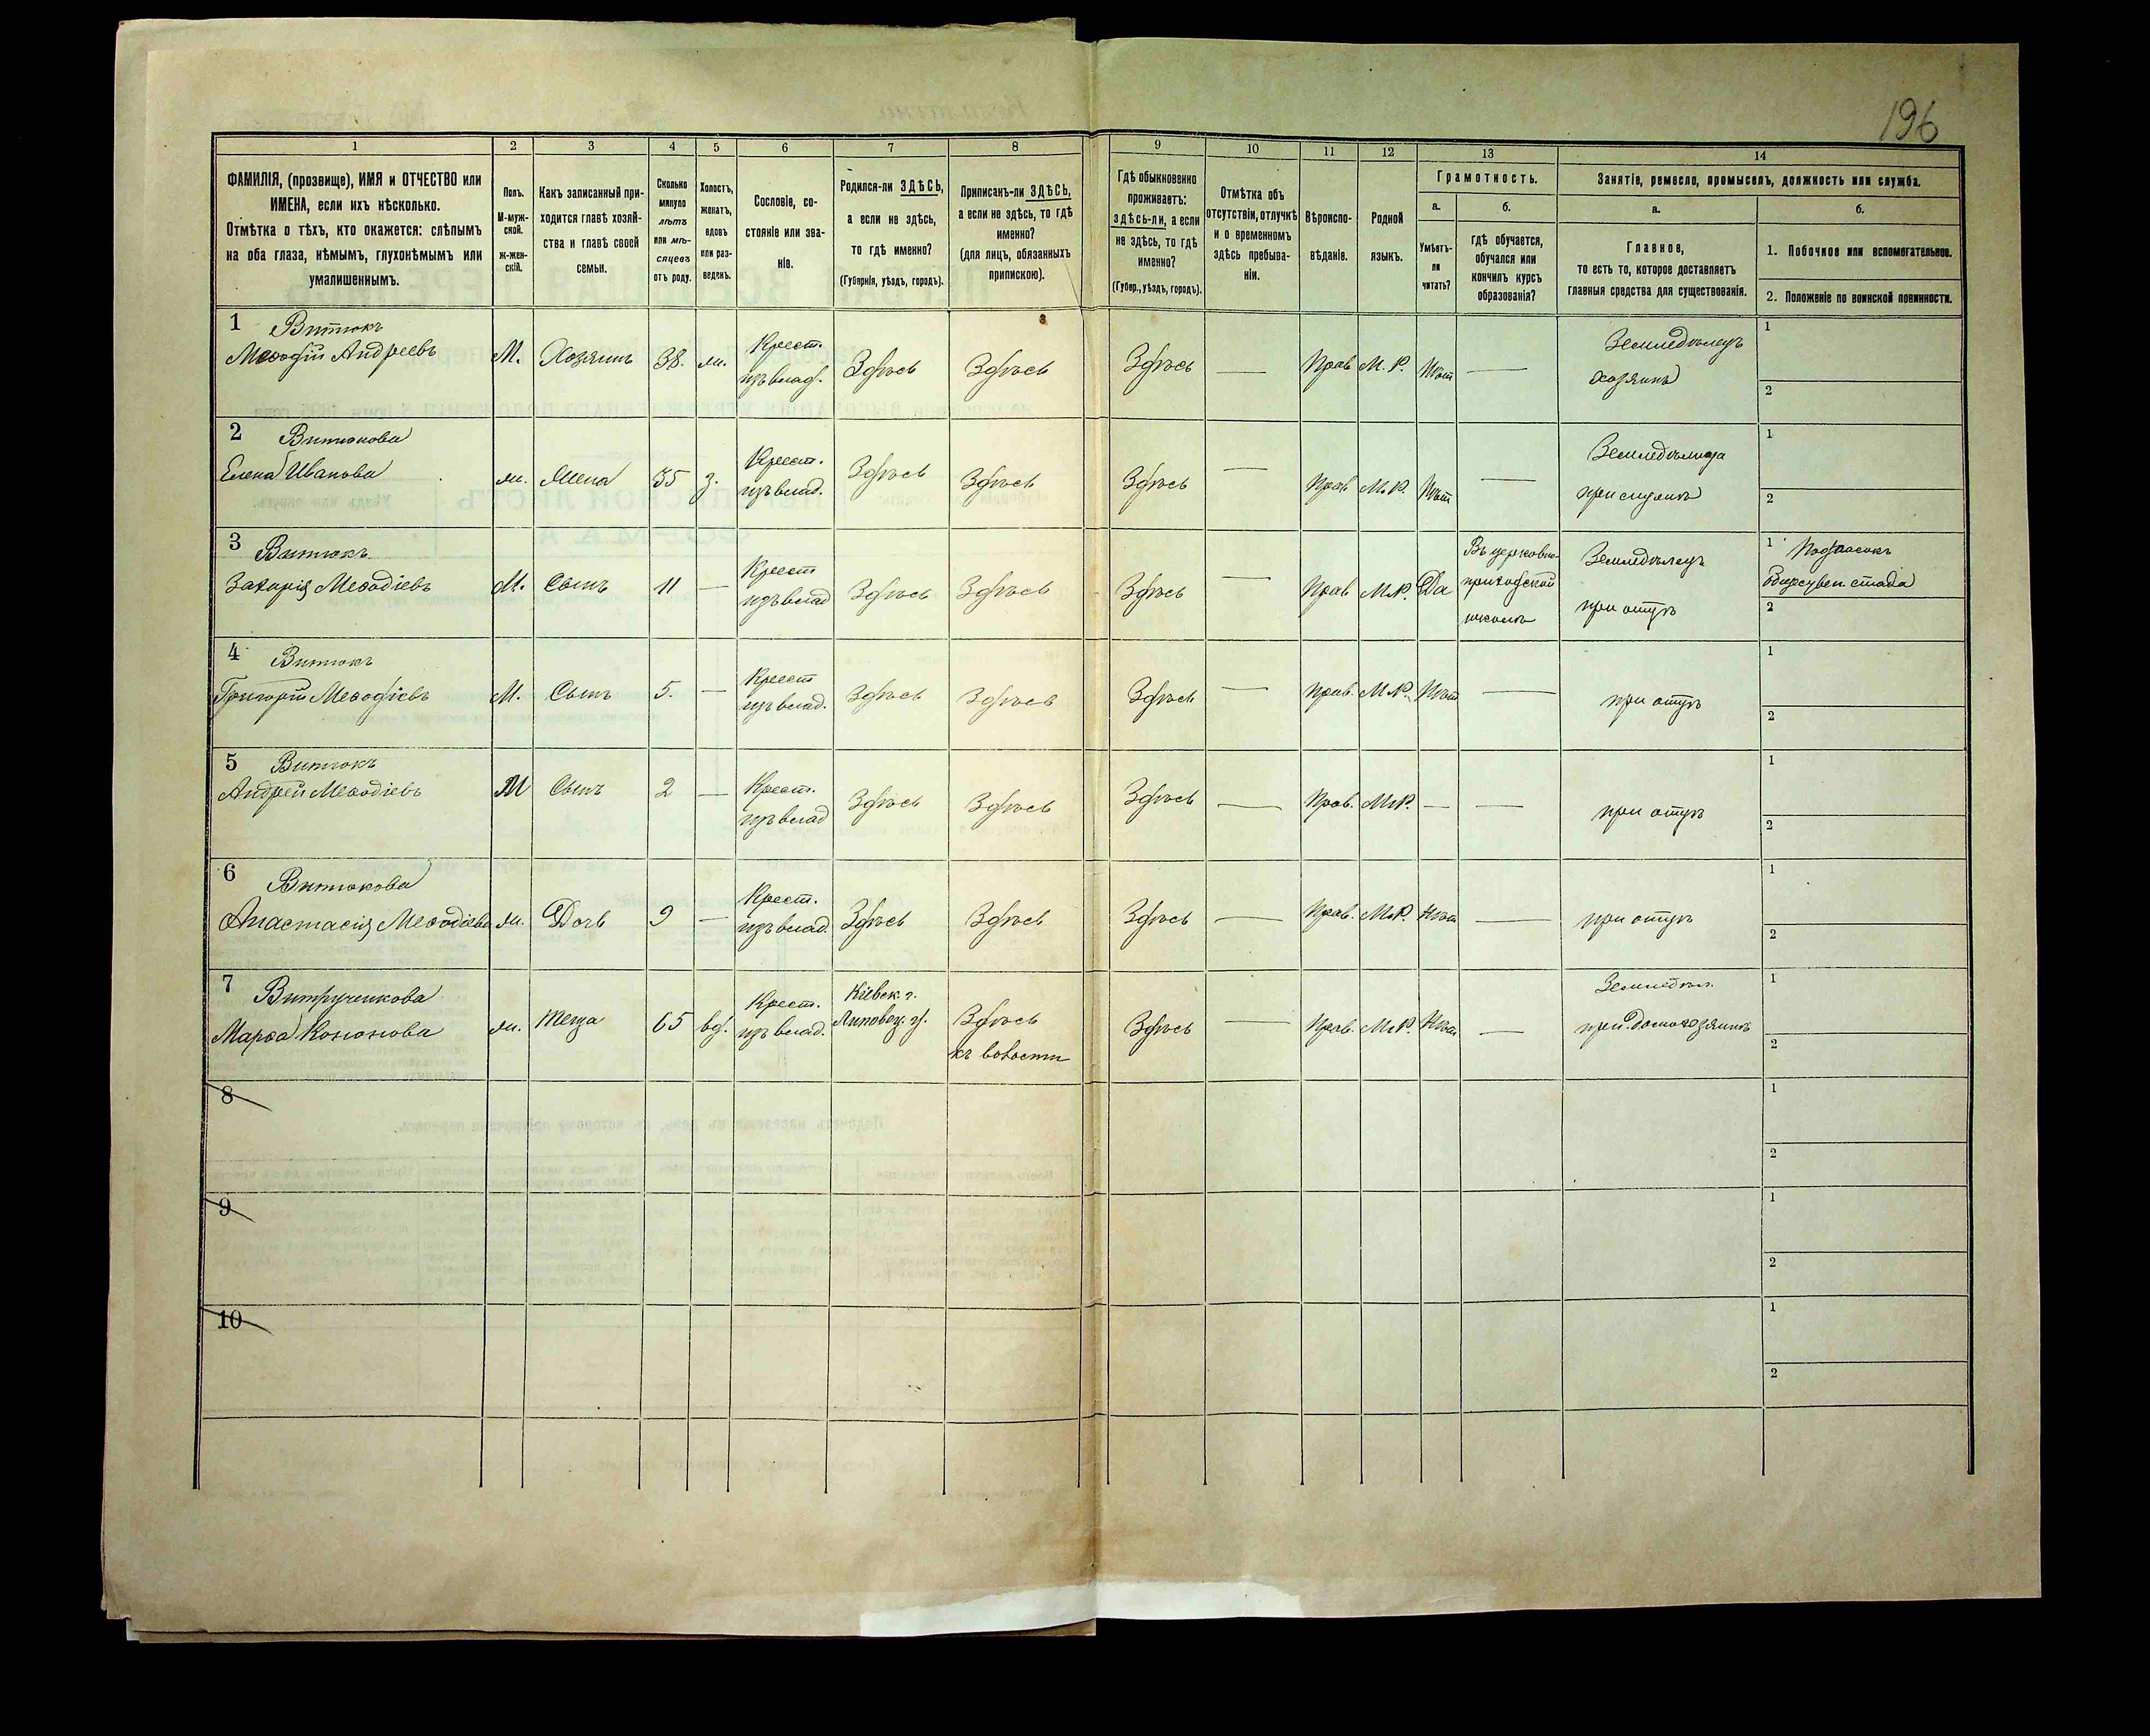 196
1 2 3 4 5 6 7 8 9 10 11 12 13 14
ФАМИЛІЯ, (прозвище), ИМЯ и ОТЧЕСТВО или
ИМЕНА, если ихъ нѣсколько.
Отмѣтка о тѣхъ, кто окажется: слѣпымъ
на оба глаза, нѣмымъ, глухонѣмымъ или
умалишеннымъ.
Полъ.
М-муж-
ской.
ж-жен-
скій.
Какъ записанный при-
ходится главѣ хозяй-
ства и главѣ своей
семьи.
Сколько
минуло
лѣтъ
или мѣ-
сяцевъ
отъ роду.
Холостъ,
женатъ,
вдовъ
или раз-
веденъ.
Сословіе, со-
стояніе или зва-
ніе.
Родился-ли ЗДѢСЬ,
а если не здѣсь,
то гдѣ именно?
(Губернія, уѣздъ, городъ).
Приписанъ-ли ЗДѢСЬ,
а если не здѣсь, то гдѣ
именно?
(для лицъ, обязанныхъ
припискою).
Гдѣ обыкновенно
проживаетъ:
здѣсь-ли, а если
не здѣсь, то гдѣ
именно?
(Губер., уѣздъ, городъ).
Отмѣтка объ
отсутствіи, отлучкѣ
и о временномъ
здѣсь пребыва-
ніи.
Вѣроиспо-
вѣданіе.
Родной
языкъ.
Грамотность.
а.
Умѣетъ-
ли
читать?
б.
гдѣ обучается,
обучался или
кончилъ курсъ
образованія?
Занятіе, ремесло, промыселъ, должность или служба.
а.
Главное,
то есть то, которое доставляетъ
главныя средства для существованія.
б.
1. Побочное или вспомогательное.
2. Положеніе по воинской повинности.
1 Витюкъ
Меѳодій Андреевъ
М.
Хозяинъ
38.
ж.
Крест.
изъ влад.
Здѣсь
Здѣсь
Здѣсь
—
Прав
М. Р.
Нѣт
—
Земледѣлецъ
хозяинъ
1
2
2 Витюкова
Елена Иванова
ж.
Жена
35
з.
Крест.
изъ влад.
Здѣсь
Здѣсь
Здѣсь
—
Прав
М.Р.
Нѣт
—
Земледѣлица
при
1
2
3 Витюкъ
Захарія Меѳодіевъ
М.
Сынъ
11
—
Крест
изъ влад
Здѣсь
Здѣсь
Здѣсь
—
Прав
М.Р.
Да
Въ церковно-
приходской
школѣ
Земледѣлецъ
при отцѣ
1 Подпасокъ
стада
2
4 Витюкъ
Григорій Меѳодіевъ
М.
Сынъ
5.
—
Крест
изъ влад.
Здѣсь
Здѣсь
Здѣсь
—
Прав.
М.Р.
Нѣт
—
при отцѣ
1
2
5 Витюкъ
Андрей Меѳодіевъ
М
Сынъ
2
—
Крест.
изъ влад
Здѣсь
Здѣсь
Здѣсь
—
Прав.
М.Р.
—
—
при отцѣ
1
2
6 Витюкова
Анастасія Меѳодіева
ж.
Дочь
9
—
Крест.
изъ влад.
Здѣсь
Здѣсь
Здѣсь
—
Прав.
М.Р.
Нѣт
—
при отцѣ
1
2
7
Марѳа Кононова
ж.
Теща
65
вд.
Крест.
изъ влад.
Кіевск. г.
Липовец. у.
Здѣсь
къ волости
Здѣсь
—
Прав.
М.Р.
Нѣт
—
Земледѣл.
при домохозяинѣ
1
2
8
1
2
9
1
2
10
1
2